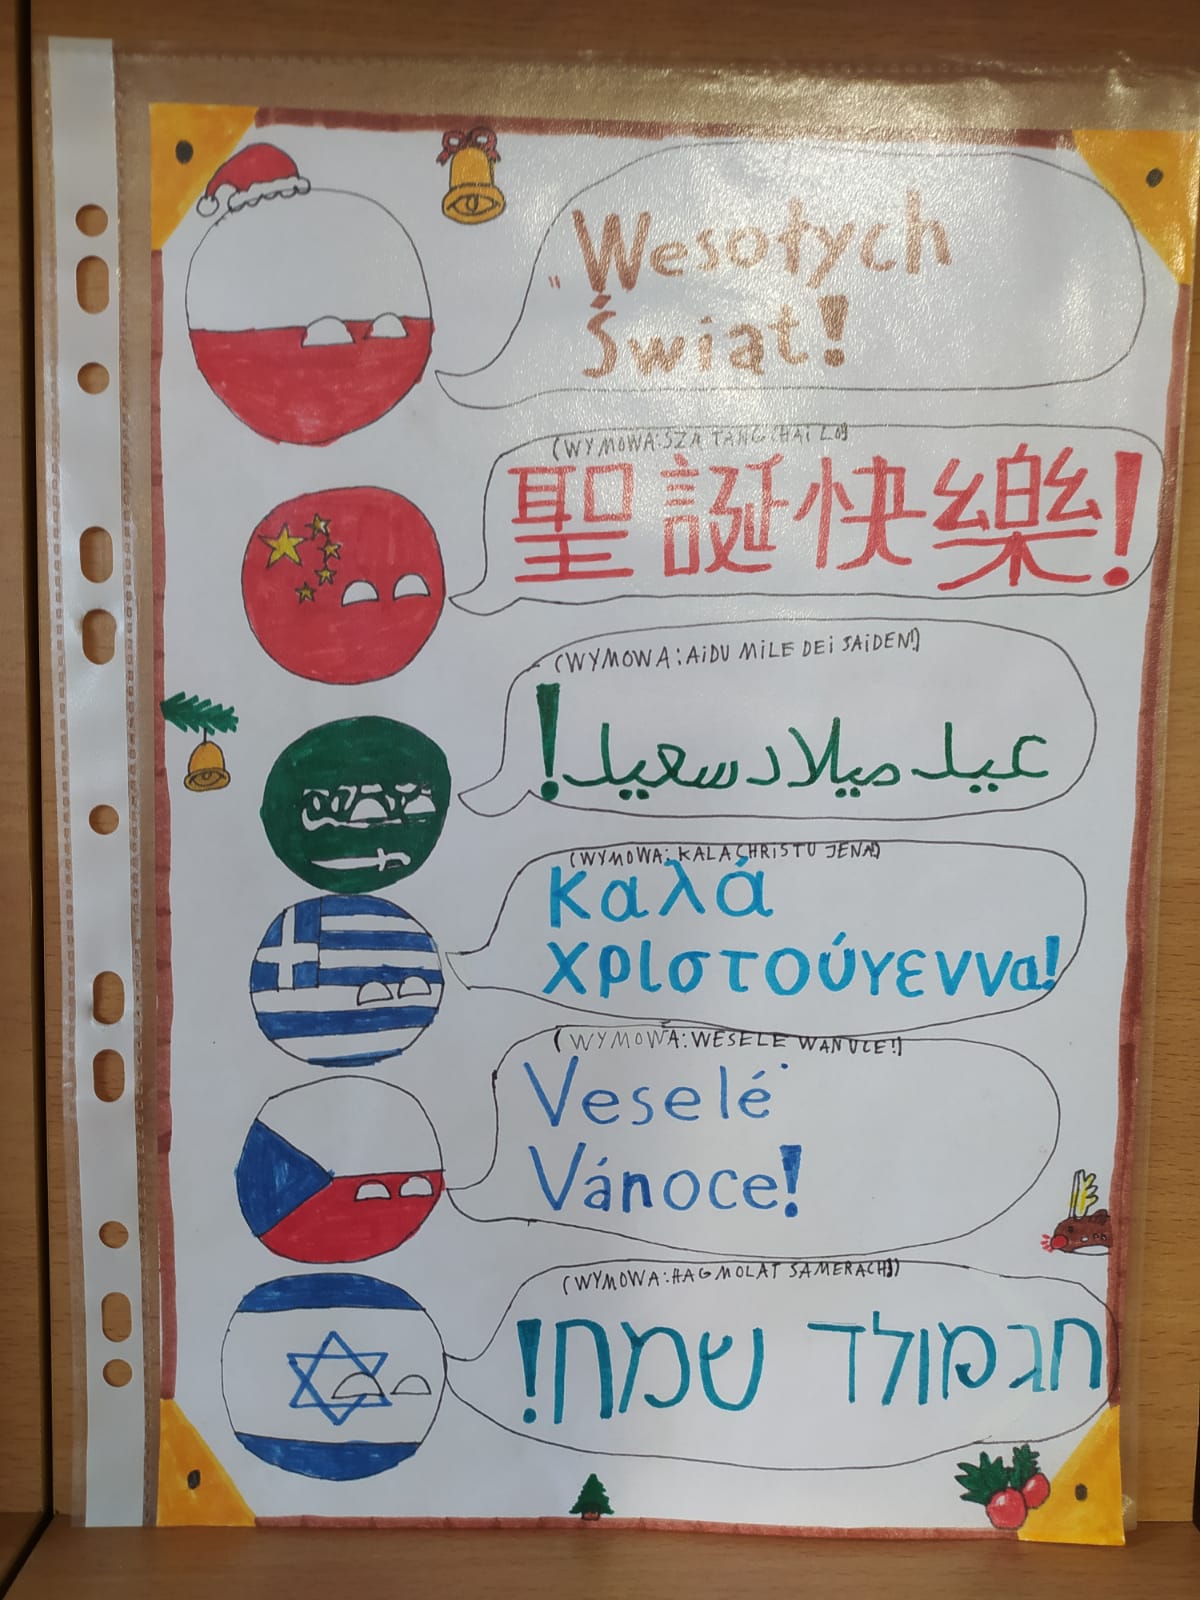 "Wesołych
Świąt!
(WYMOWA: SZA TANG CHAI LO)
聖誕快樂!
(WYMOWA: AIDU MILE DEI SAIDEN!)
عيد ميلاد سعيد!
(WYMOWA: KALACHRISTU JENA!)
Καλά
χριστούγεννα!
(WYMOWA: WESELE WANUCE!)
Veselé
Vánoce!
(WYMOWA: HAG MOLAT SAMERACH!)
חג מולד שמח!